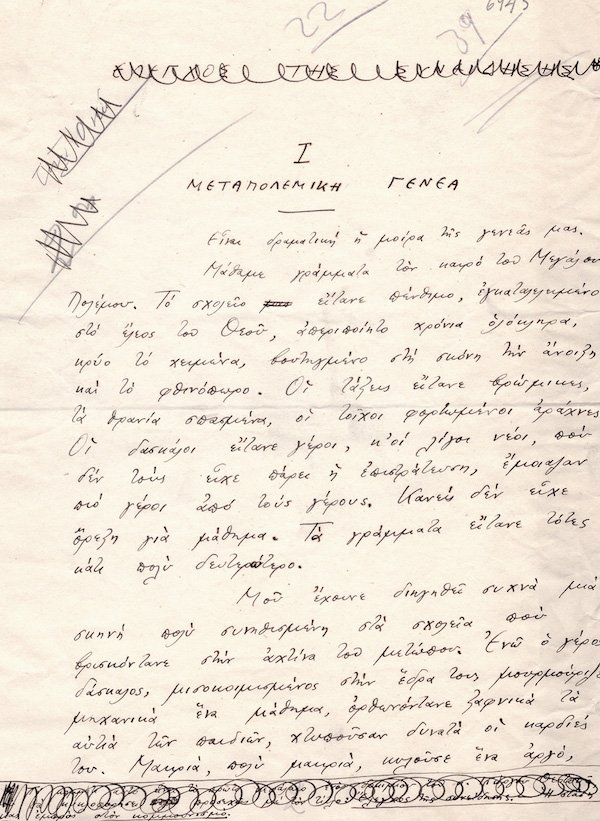 22
39
6945
ΕΛΕΓΧΟΣ ΤΗΣ ΣΥΝΕΙΔΗΣΗΣ
I
ΜΕΤΑΠΟΛΕΜΙΚΗ ΓΕΝΕΑ
Εἶναι δραματικὴ ἡ μοίρα τῆς γενεᾶς μας.
Μάθαμε γράμματα τὸν καιρὸ τοῦ Μεγάλου
Πολέμου. Τὸ σχολεῖο εἴτανε πένθιμο, ἐγκαταλειμένο
στὸ ἔλεος τοῦ Θεοῦ, ἀπεριποίητο χρόνια ὁλόκληρα,
κρύο τὸ χειμώνα, βουτηγμένο στὴ σκόνη τὴν ἄνοιξη
καὶ τὸ φθινόπωρο. Οἱ τάξεις εἴτανε βρώμικες,
τὰ θρανία σπασμένα, οἱ τοῖχοι φορτωμένοι ἀράχνες
Οἱ δασκάλοι εἴτανε γέροι, κ' οἱ λίγοι νέοι, ποὺ
δὲν τοὺς εἶχε πάρει ἡ ἐπιστράτευση, ἔμοιαζαν
πιὸ γέροι ἀπὸ τοὺς γέρους. Κανεὶς δὲν εἶχε
ὄρεξη γιὰ μάθημα. Τὰ γράμματα εἴτανε τότες
κάτι πολὺ δευτερώτερο.
Μοῦ ἔχουνε διηγηθεῖ συχνὰ μιὰ
σκηνὴ πολὺ συνηθισμένη στὰ σχολεῖα ποὺ
βρισκόντανε στὴν ἀχτίνα τοῦ μετώπου. Ἐνῶ ὁ γέρος
δάσκαλος, μισοκοιμισμένος στὴν ἕδρα του, μουρμούριζε
μηχανικὰ ἕνα μάθημα, ὀρθωνόντανε ξαφνικὰ τὰ
αὐτιὰ τῶν παιδιῶν, χτυποῦσαν δυνατὰ οἱ καρδιές
του. Μακριά, πολὺ μακριά, κυλοῦσε ἕνα ἀργό,
Ἔλεγχος τῆς συνείδησης. Ἡ
στὸν κομμουνισμό.